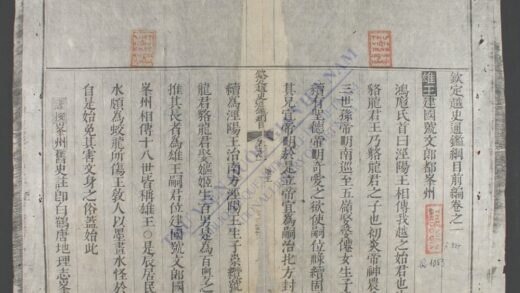 欽定越史通鑑綱目前編卷之一
雄王建國號文郎都峯州
鴻厖氏首曰涇陽王相傳我越之始君也
貉龍君王乃貉龍君之子也初炎帝神農
三世孫帝明南巡至五嶺娶婺僊女生子
續有聖德帝明奇愛之欲使嗣位續固
其兄宜帝明於是立帝宜為嗣治北方封
續為涇陽王治南方涇陽王生子崇纜號
龍君貉龍君娶嫗姬生百男是為百粤之
推其長者為雄王嗣君位建國號文郎國
峯州相傳十八世皆稱雄王○是辰居民
水頗為蛟龍所傷王教人以墨畫水怪於
自是始免其害文身之俗蓋始此
峯州舊史註即白鶴唐地理志峯